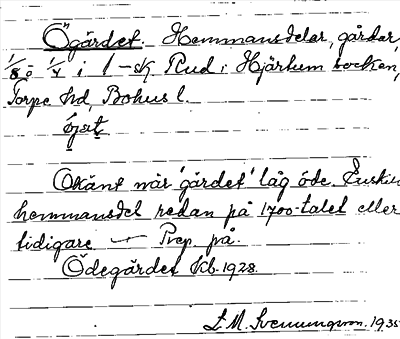 Ögärdet. Hemmansdelar, gårdar,
1/8 o 1/4 i 1 sk Rud i Hjärtum socken,
Torpe hd, Bohus l.
Okänt när 'gärdet' låg öde. Enskild
hemmansdel redan på 1700-talet eller
tidigare — Prep. på.
Ödegärdet kb. 1928.
L. M. Svenungsson. 1935